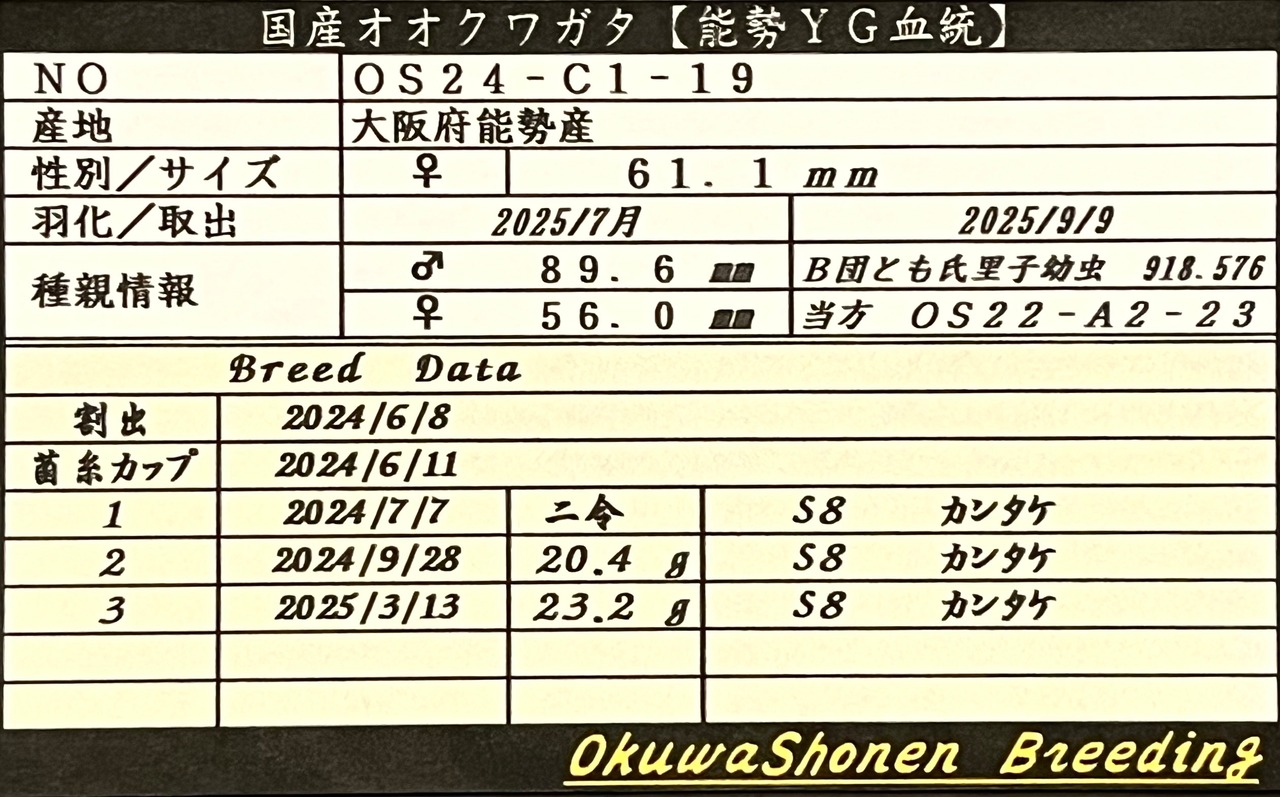 国産オオクワガタ【能勢ＹＧ血統】
ＮＯ ＯＳ２４－Ｃ１－１９
産地 大阪府能勢産
性別／サイズ ♀ ６１．１ mm
羽化／取出 2025/7月 2025/9/9
種親情報 ♂ ８９．６ ㎜ B団とも氏里子幼虫 918.576
♀ ５６．０ ㎜ 当方 ＯＳ２２－Ａ２－２３
Breed Data
割出 2024/6/8
菌糸カップ 2024/6/11
1 2024/7/7 二令 S8 カンタケ
2 2024/9/28 20.4 g S8 カンタケ
3 2025/3/13 23.2 g S8 カンタケ
OkuwaShonen Breeding